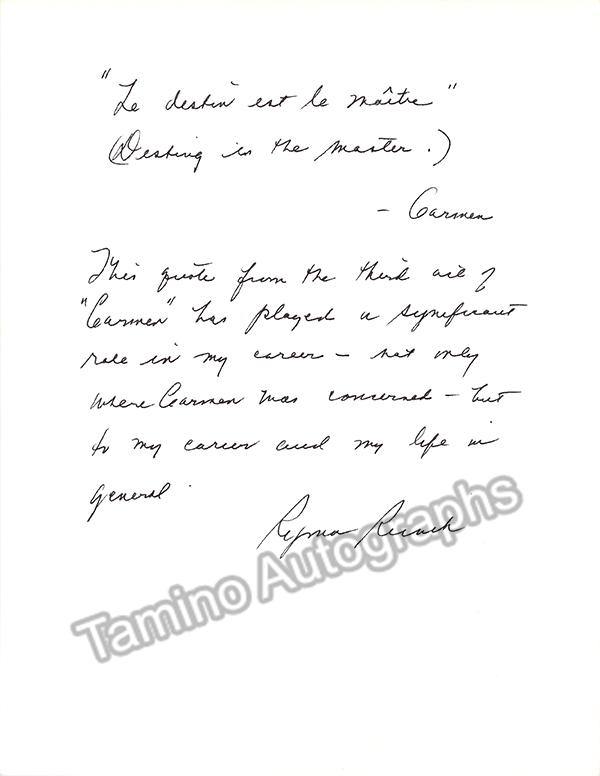 "Le destin est le maître"
(Destiny is the master.)
- Carmen
This quote from the third act of
"Carmen" has played a significant
role in my career - not only
where Carmen was concerned - but
to my career and my life in
general.
Regina Resnik
Tamino Autographs